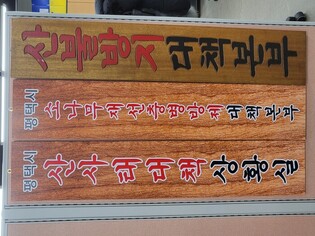 산불방지대책본부
평택시 소나무재선충병방제 대책본부
평택시 산사태대책 상황실